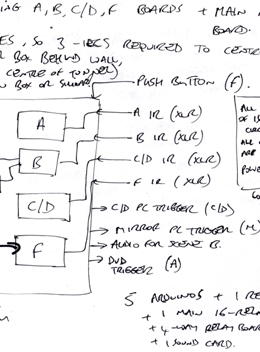 ING A, B, C/D, F BOARDS + MAIN
BOARD.
ES, SO 3-IECS REQUIRED TO CENTRE
BOX BEHIND WALL,
CENTRE OF TUNNEL)
BOX OR
PUSH BUTTON (F).
A
A IR (XLR)
B IR (XLR)
B
C/D IR (XLR)
F IR (XLR)
C/D
C/D PC TRIGGER (C/D)
MIRROR PC TRIGGER (M)
F
AUDIO FOR SCENE B.
DVD
TRIGGER (A)
ALL
OF
ALL
ARE
POWE
5 ARDUINOS + 1 RE
+ 1 MAIN 16-RELA
+ 4-WAY RELAY BOAR
+ 1 SOUND CARD.